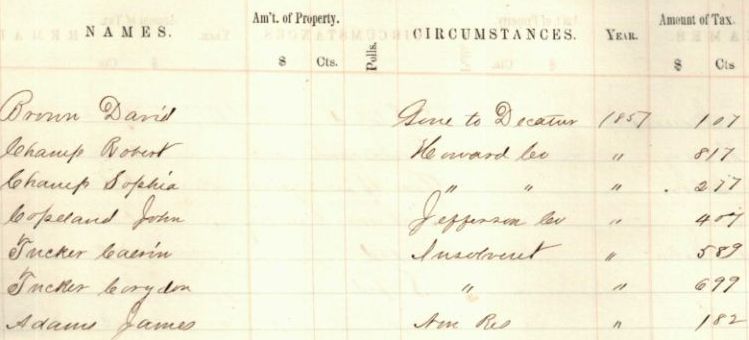 NAMES. Am't. of Property. Polls. CIRCUMSTANCES. YEAR. Amount of Tax.
$ Cts. $ Cts
Brown David Gone to Decatur 1857 107
Champ Robert Howard Co " 817
Champ Sophia " " " 277
Copeland John Jefferson Co " 407
Tucker Calvin Insolvent " 589
Tucker Corydon " " 699
Adams James Non Res " 182